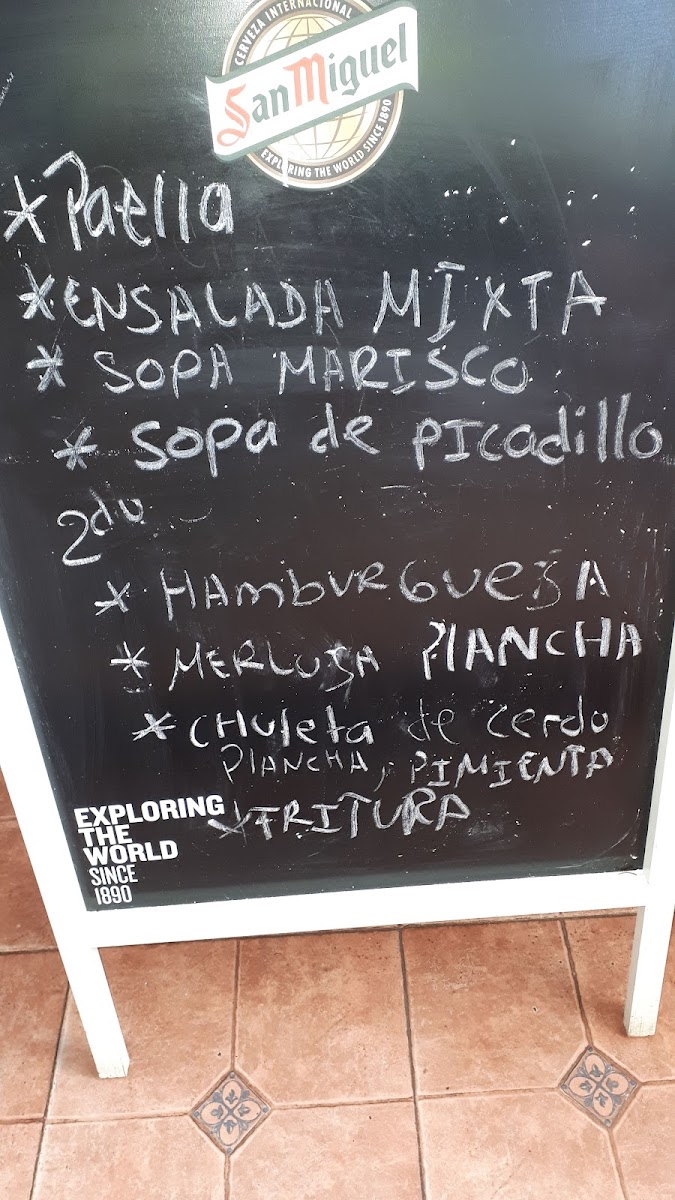 CERVEZA INTERNACIONAL
San Miguel
EXPLORING THE WORLD SINCE 1890
* Paella
* ENSALADA MIXTA
* SOPA MARISCO
* Sopa de PIcadillo
2do
* HAmbURGUesA
* MERLUSA PlANCHA
* CHUleta de cerdo
PlANCHA, PIMIENTA
* FRITURA
EXPLORING
THE
WORLD
SINCE
1890